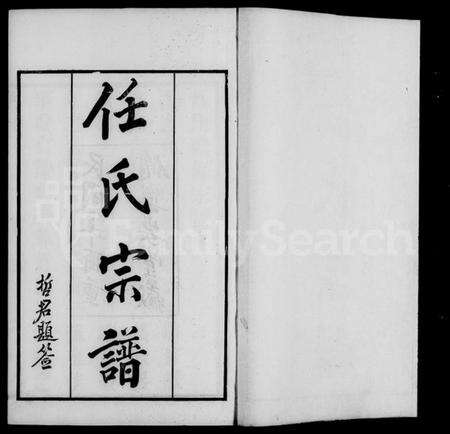 任氏宗譜
哲君題簽
FamilySearch